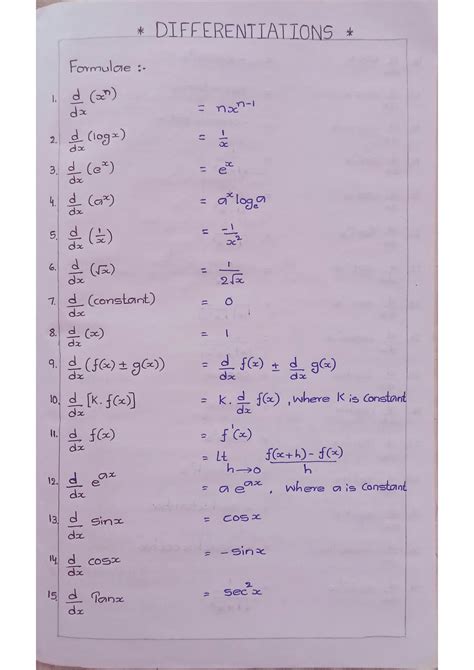 * DIFFERENTIATIONS *
Formulae :-
1. d/dx (xⁿ) = nxⁿ⁻¹
2. d/dx (logx) = 1/x
3. d/dx (eˣ) = eˣ
4. d/dx (aˣ) = aˣ logₑa
5. d/dx (1/x) = -1/x²
6. d/dx (√x) = 1/2√x
7. d/dx (constant) = 0
8. d/dx (x) = 1
9. d/dx (f(x) ± g(x)) = d/dx f(x) ± d/dx g(x)
10. d/dx [K.f(x)] = K. d/dx f(x) , where K is constant
11. d/dx f(x) = f'(x)
= Lt h→0 f(x+h) - f(x)/h
12. d/dx eᵃˣ = a eᵃˣ , where a is constant
13. d/dx sinx = cosx
14. d/dx cosx = -sinx
15. d/dx Tanx = sec²x